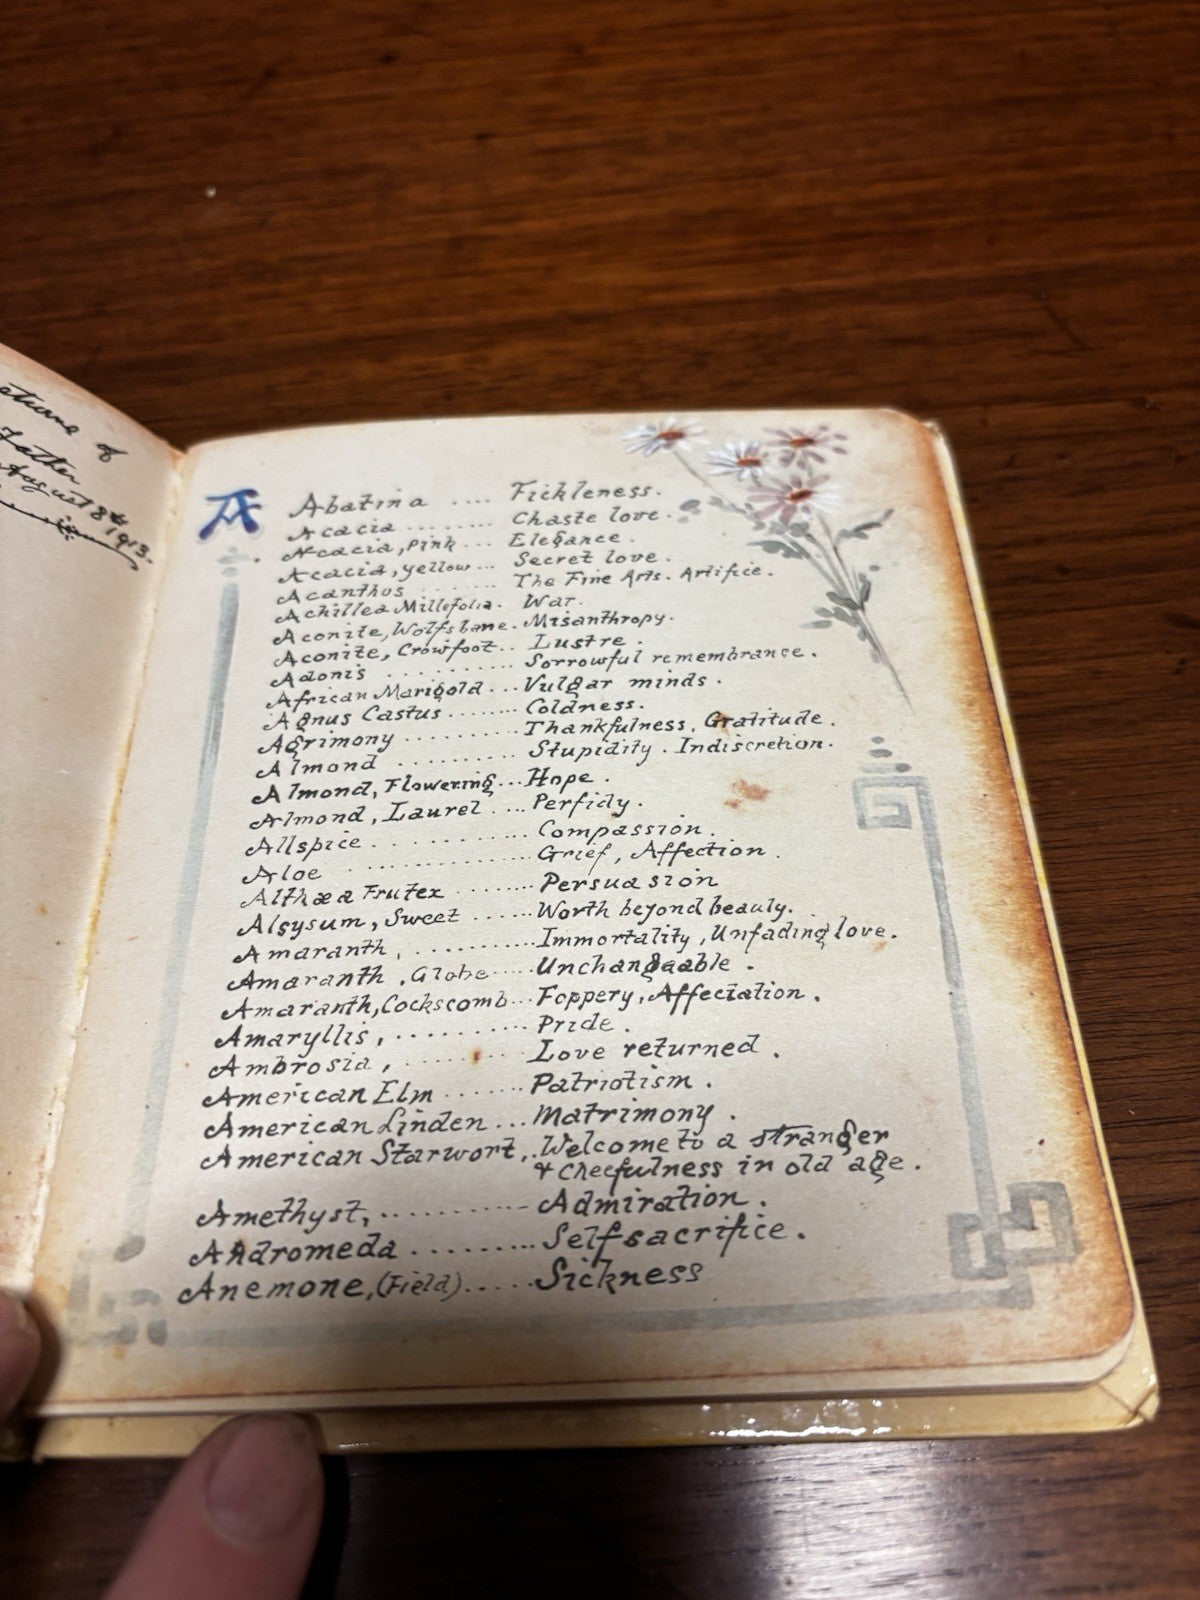 eturns of
Father
August 8th 1913.
A
Abatina .... Fickleness.
Acacia ........ Chaste love.
Acacia, Pink ... Elegance.
Acacia, yellow ... Secret love.
Acanthus ........ The Fine Arts. Artifice.
Achillea Millefolia. War.
Aconite, Wolfsbane. Misanthropy.
Aconite, Crowfoot.. Lustre.
Adonis .......... Sorrowful remembrance.
African Marigold ... Vulgar minds.
Agnus Castus ........ Coldness.
Agrimony .......... Thankfulness, Gratitude.
Almond .......... Stupidity. Indiscretion.
Almond, Flowering... Hope.
Almond, Laurel .... Perfidy.
Allspice ........... Compassion.
Aloe ............. Grief, Affection.
Althæa Frutex ........ Persuasion
Alsysum, Sweet ...... Worth beyond beauty.
Amaranth, .......... Immortality, Unfading love.
Amaranth, Globe ..... Unchangaable.
Amaranth, Cockscomb... Foppery, Affectation.
Amaryllis, .......... Pride.
Ambrosia, .......... Love returned.
American Elm ....... Patriotism.
American Linden ... Matrimony.
American Starwort,.. Welcome to a stranger
& Cheefulness in old age.
Amethyst, .......... Admiration.
Andromeda .......... Selfsacrifice.
Anemone, (Field) ..... Sickness